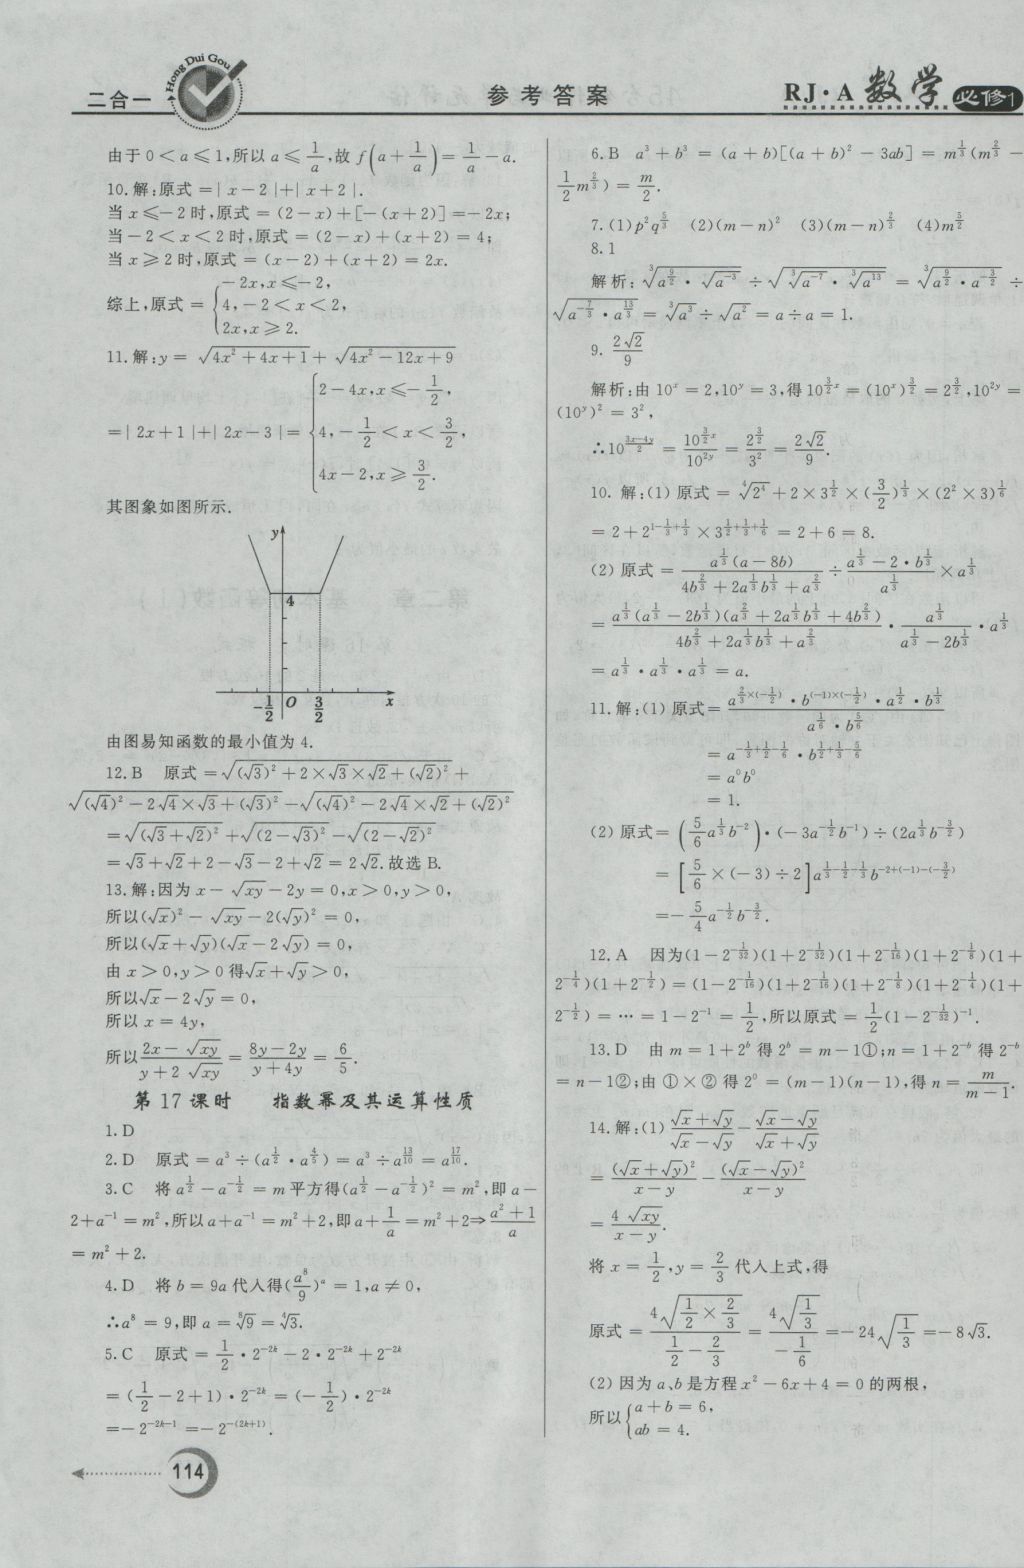 二合一
Hong Dui Gou
参考答案
RJ·A 数学 必修1
由于0<a≤1,所以a≤1/a,故f(a+1/a)=1/a-a.
10.解:原式=|x-2|+|x+2|.
当x≤-2时,原式=(2-x)+[-(x+2)]=-2x;
当-2<x<2时,原式=(2-x)+(x+2)=4;
当x≥2时,原式=(x-2)+(x+2)=2x.
综上,原式={-2x,x≤-2,
4,-2<x<2,
2x,x≥2.
11.解:y=√(4x²+4x+1)+√(4x²-12x+9)
=|2x+1|+|2x-3|={2-4x,x≤-1/2,
4,-1/2<x<3/2,
4x-2,x≥3/2.
其图象如图所示.
y
4
-1/2 O 3/2 x
由图易知函数的最小值为4.
12.B 原式=√((√3)²+2×√3×√2+(√2)²)+
√((√4)²-2√4×√3+(√3)²)-√((√4)²-2√4×√2+(√2)²)
=√((√3+√2)²)+√((2-√3)²)-√((2-√2)²)
=√3+√2+2-√3-2+√2=2√2.故选B.
13.解:因为x-√(xy)-2y=0,x>0,y>0,
所以(√x)²-√(xy)-2(√y)²=0,
所以(√x+√y)(√x-2√y)=0,
由x>0,y>0得√x+√y>0,
所以√x-2√y=0,
所以x=4y,
所以(2x-√(xy))/(y+2√(xy))=(8y-2y)/(y+4y)=6/5.
第17课时 指数幂及其运算性质
1.D
2.D 原式=a³÷(a^(1/2)·a^(4/5))=a³÷a^(13/10)=a^(17/10).
3.C 将a^(1/2)-a^(-1/2)=m平方得(a^(1/2)-a^(-1/2))²=m²,即a-
2+a⁻¹=m²,所以a+a⁻¹=m²+2,即a+1/a=m²+2⇒(a²+1)/a
=m²+2.
4.D 将b=9a代入得(a⁸/9)^a=1,a≠0,
∴a⁸=9,即a=⁸√9=⁴√3.
5.C 原式=1/2·2^(-2k)-2·2^(-2k)+2^(-2k)
=(1/2-2+1)·2^(-2k)=(-1/2)·2^(-2k)
=-2^(-2k-1)=-2^(-(2k+1)).
114
6.B a³+b³=(a+b)[(a+b)²-3ab]=m^(1/3)(m^(2/3)-
1/2m^(2/3))=m/2.
7.(1)p²q^(5/3) (2)(m-n)² (3)(m-n)^(2/3) (4)m^(5/2)
8.1
解析:³√(a^(9/2)·√(a⁻³))÷√(³√(a⁻⁷)·³√(a¹³))=³√(a^(9/2)·a^(-3/2))÷
√(a^(-7/3)·a^(13/3))=³√(a³)÷√(a²)=a÷a=1.
9. 2√2/9
解析:由10^x=2,10^y=3,得10^(3/2x)=(10^x)^(3/2)=2^(3/2),10^(2y)=
(10^y)²=3²,
∴10^((3x-4y)/2)=10^(3/2x)/10^(2y)=2^(3/2)/3²=2√2/9.
10.解:(1)原式=⁴√(2⁴)+2×3^(1/2)×(3/2)^(1/3)×(2²×3)^(1/6)
=2+2^(1-1/3+1/3)×3^(1/2+1/3+1/6)=2+6=8.
(2)原式=a^(1/3)(a-8b)/(4b^(2/3)+2a^(1/3)b^(1/3)+a^(2/3))÷(a^(1/3)-2·b^(1/3))/a^(1/3)×a^(1/3)
=a^(1/3)(a^(1/3)-2b^(1/3))(a^(2/3)+2a^(1/3)b^(1/3)+4b^(2/3))/(4b^(2/3)+2a^(1/3)b^(1/3)+a^(2/3))·a^(1/3)/(a^(1/3)-2b^(1/3))·a^(1/3)
=a^(1/3)·a^(1/3)·a^(1/3)=a.
11.解:(1)原式=(a^(2/3×(-1/2))·b^((-1)×(-1/2))·a^(1/2)·b^(1/3))/(a^(1/6)·b^(5/6))
=a^(-1/3+1/2-1/6)·b^(1/2+1/3-5/6)
=a⁰b⁰
=1.
(2)原式=(5/6a^(1/3)b⁻²)·(-3a^(-1/2)b⁻¹)÷(2a^(1/3)b^(-3/2))
=[5/6×(-3)÷2]a^(1/3-1/2-1/3)b^(-2+(-1)-(-3/2))
=-5/4a^(-1/2)b^(-3/2).
12.A 因为(1-2^(-1/32))(1+2^(-1/32))(1+2^(-1/16))(1+2^(-1/8))(1+
2^(-1/4))(1+2^(-1/2))=(1-2^(-1/16))(1+2^(-1/16))(1+2^(-1/8))(1+2^(-1/4))(1+
2^(-1/2))=…=1-2⁻¹=1/2,所以原式=1/2(1-2^(-1/32))⁻¹.
13.D 由m=1+2^b得2^b=m-1①;n=1+2^(-b)得2^(-b)
=n-1②;由①×②得2⁰=(m-1)(n-1),得n=m/(m-1).
14.解:(1)(√x+√y)/(√x-√y)-(√x-√y)/(√x+√y)
=(√x+√y)²/(x-y)-(√x-√y)²/(x-y)
=4√(xy)/(x-y).
将x=1/2,y=2/3代入上式,得
原式=4√(1/2×2/3)/(1/2-2/3)=4√(1/3)/(-1/6)=-24√(1/3)=-8√3.
(2)因为a、b是方程x²-6x+4=0的两根,
所以{a+b=6,
ab=4.